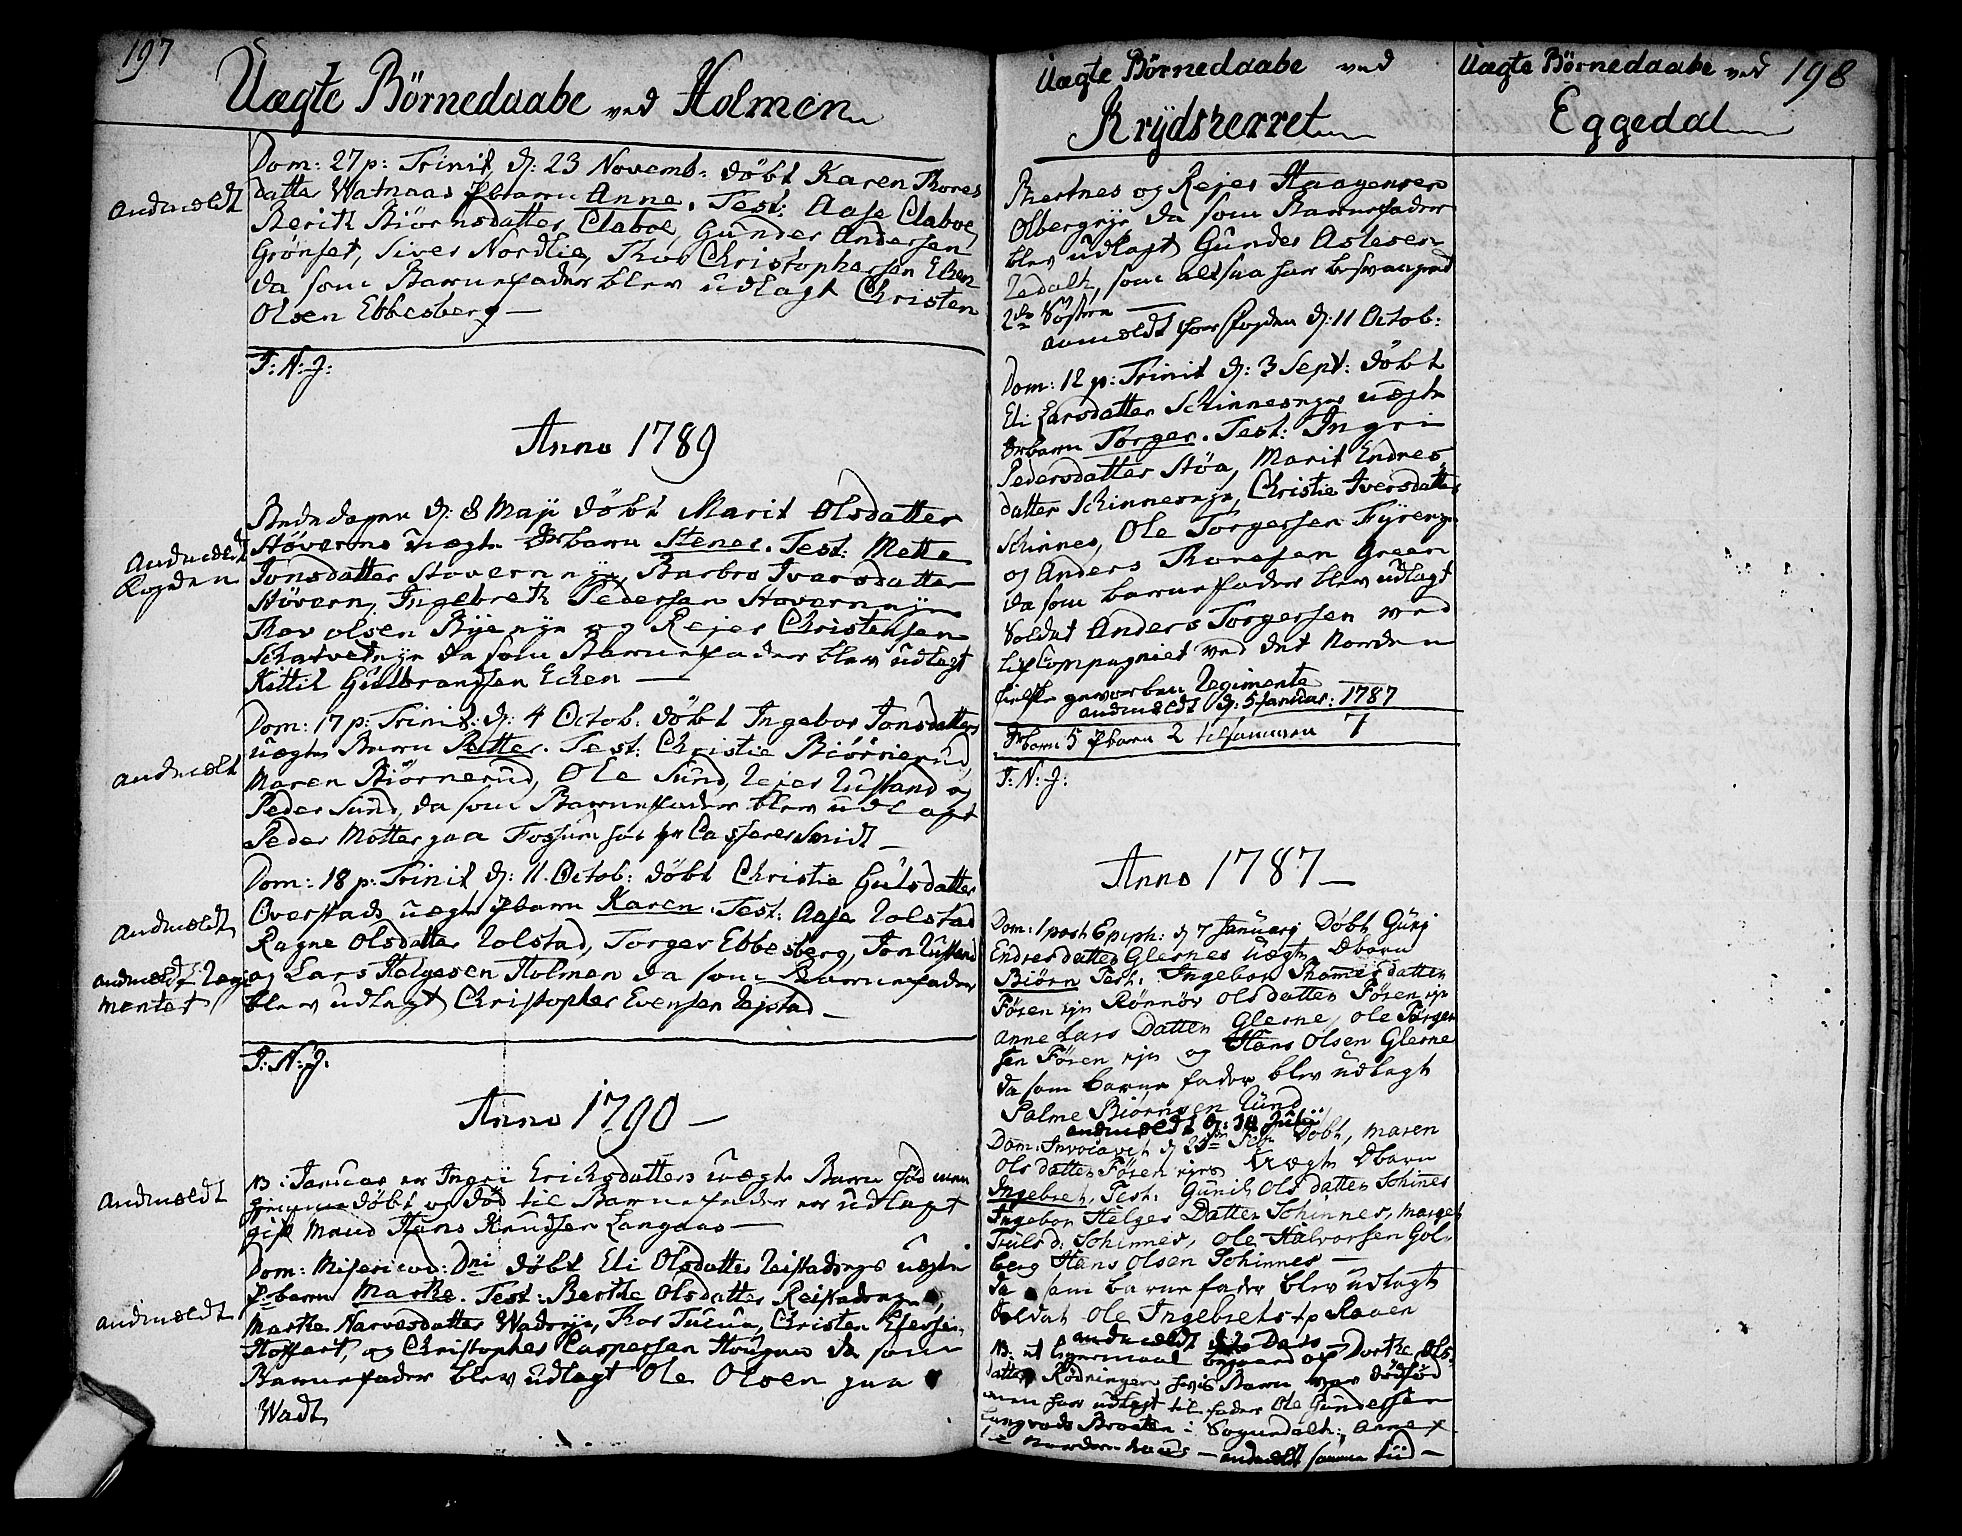 197
Uægte Börnedaabe ved Holmen
Dom: 27 p: Trinit, d: 23 Novemb: döbt Karen Thores
datter Watnaas Pbarn Anne. Test: Aase Claboe
andmeldt
Berith Biörnsdatter Claboe, Gunder Andersen
Grönset, Siver Nordlie, Thor Christophersen Eken
da som Barnefader blev udlagt Christen
Olsen Ebbesberg
I: N: J:
Anno 1789
Bededagen d: 8 Maji döbt Marit Olsdatter
Stöverns uægte Drbarn Stener. Test: Mette
andmeldt
Fogden
Jonsdatter Stovernnye, Barbro Iversdatter
Stövern, Ingebreth Pedersen Stovernnye
Thov olsen Byenye og Rejer Christensen
Schatvetnye da som Barnefader blev udlagt
Kittil Gulbrandsen Ecken
Dom: 17 p: Trinit: d: 4 Octob: döbt Ingebor Jonsdatters
uægte Barn Petter. Test: Christie Biörnerud
andmeldt
Maren Biörnerud, Ole Sund, Rejer Rustand og
Peder Sund, da som Barnefader blev udlagt
Peder Motter paa Fossum hos hr Casserer Smidt
Dom: 18 p: Trinit, d: 11 Octob: döbt Christie Gulsdatter
Overstads uægte Pbarn Karen. Test: Aase Rolstad
andmeldt
Ragne Olsdatter Rolstad, Torger Ebbesberg, Jon Rustand
andmeldt Regi
mentet
og Lars Helgesen Holmen da som Barnefader
blev udlagt Christopher Evensen Rejstad
I: N: J:
Anno 1790
NB: Januar er Ingri Ericksdatters uægte Barn föd men
andmeldt
hjemmedöbt og död til Barnefader er udlagt
gift Mand Hans Knudsen Langaas
Dom: Misericord: Dni döbt Eli Olsdatter Reistadenge uægte
Pbarn Marthe. Test: Berthe Olsdatter Reistadenge
andmeldt
Marthe Narvesdatter Wadnye, Thor Tucua, Christen
og Christopher Caspersen Hougnes da som
Barnefader blev udlagt Ole Olsen paa
Wadt
Uægte Börnedaabe ved
Krydsherret
og Rejer Haagensen
Olbergnye, da som Barnefader
blev udlagt Gunder Astesen
som altsaa har besvangred
2de Söstre
anmeldt for Fogden d: 11 Octob:
Dom: 12 p: Trinit d: 3 Sept: döbt
Eli Larsdatter Schinnesnyes uægte
Drbarn Torger. Test: Ingri
Pedersdatter Stöa, Marit Endres
datter Schinnesnye, Christie Iversdatter
Schinnes, Ole Torgersen Fyrenye
og Anders Thoresen Green
da som barnefader blev udlagt
Soldat Anders Torgersen ved
lifcompagniet ved det Norden
fielske geworben Regimente
andmeldt d: 5 Januar: 1787
Drbarn 5 Pbarn 2 tilsammen 7
I: N: J:
Anno 1787
Dom: 1 post Epiph: d 7 Januarj Döbt Gurj
Endresdatter Glernes uægte Dbarn
Biörn Test: Ingebor Thomesdatter
Fören nye Rönnöv Olsdatter Fören nye
Anne Lars Datter Glerne, Ole Törger
sen Fören nye og Hans Olsen Glerne
da som barne fader blev udlagt
Palme Biörnsen Lund
andmeldt d: 10 Julii
Dom: Invocavit d 25de Febr Döbt, Maren
Olsdatter Fören nyes Uægte Dbarn
Ingebret, Test: Gunil Olsdatter Schines
Ingebor Helges Datter Schinnes, Marget
Truls d: Schinnes, Ole Halvorsen Gol
berg Hans Olsen Schinnes
da som barnefader blev udlagt
Soldat Ole Ingebrets: Raaen
andmeldt
NB: et leyermaal begaaed af Dorthe Ols
datter Rödningen, hvis Barn var dödföd
men har udlagt til fader Ole Gundersen
Braaten i Sognedalh: Annex
andmeldt samme tiid
Uægte Börnedaabe ved
198
Eggedal